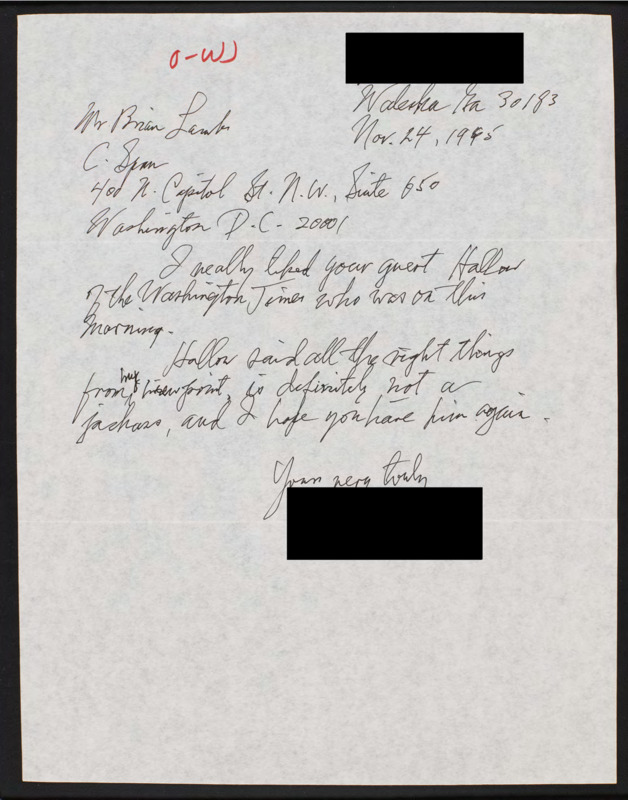 O-WJ
Waleska Ga 30183
Nov. 24, 1995
Mr Brian Lamb
C. Span
400 N. Capitol St. N.W., Suite 650
Washington D.C. 20001
I really liked your guest Hallow
of the Washington Times who was on this
morning.
Hallow said all the right things
from my viewpoint, is definitely not a
jackass, and I hope you have him again.
Yours very truly